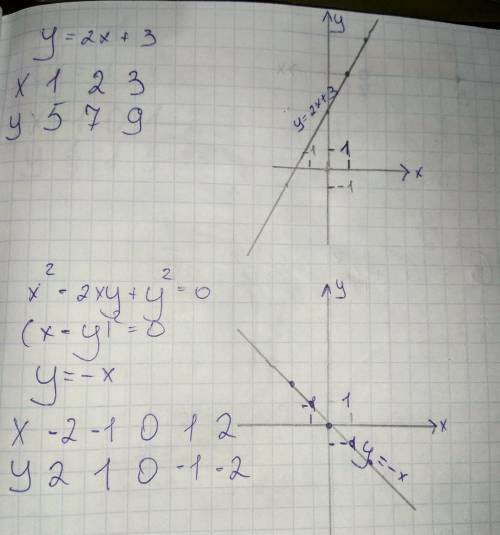 y = 2x + 3
x 1 2 3
y 5 7 9
y
y = 2x + 3
-1 1
x
-1
x² - 2xy + y² = 0
(x - y)² = 0
y = -x
x -2 -1 0 1 2
y 2 1 0 -1 -2
y
-1 1
x
y = -x